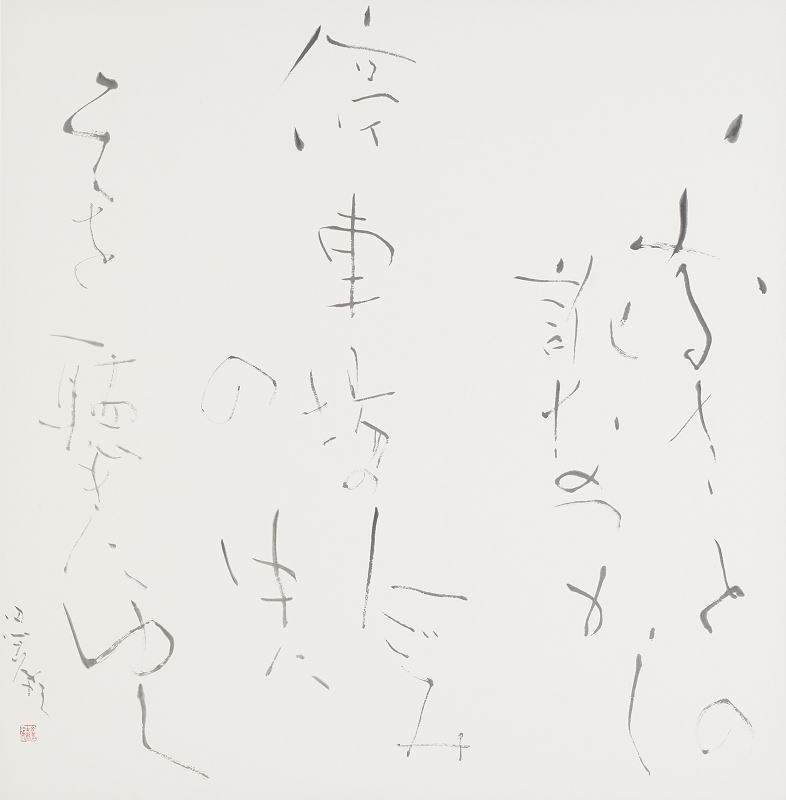 ふるさとの
訛なつかし
停車場の人ごみ
の中に
そを聴きにゆく